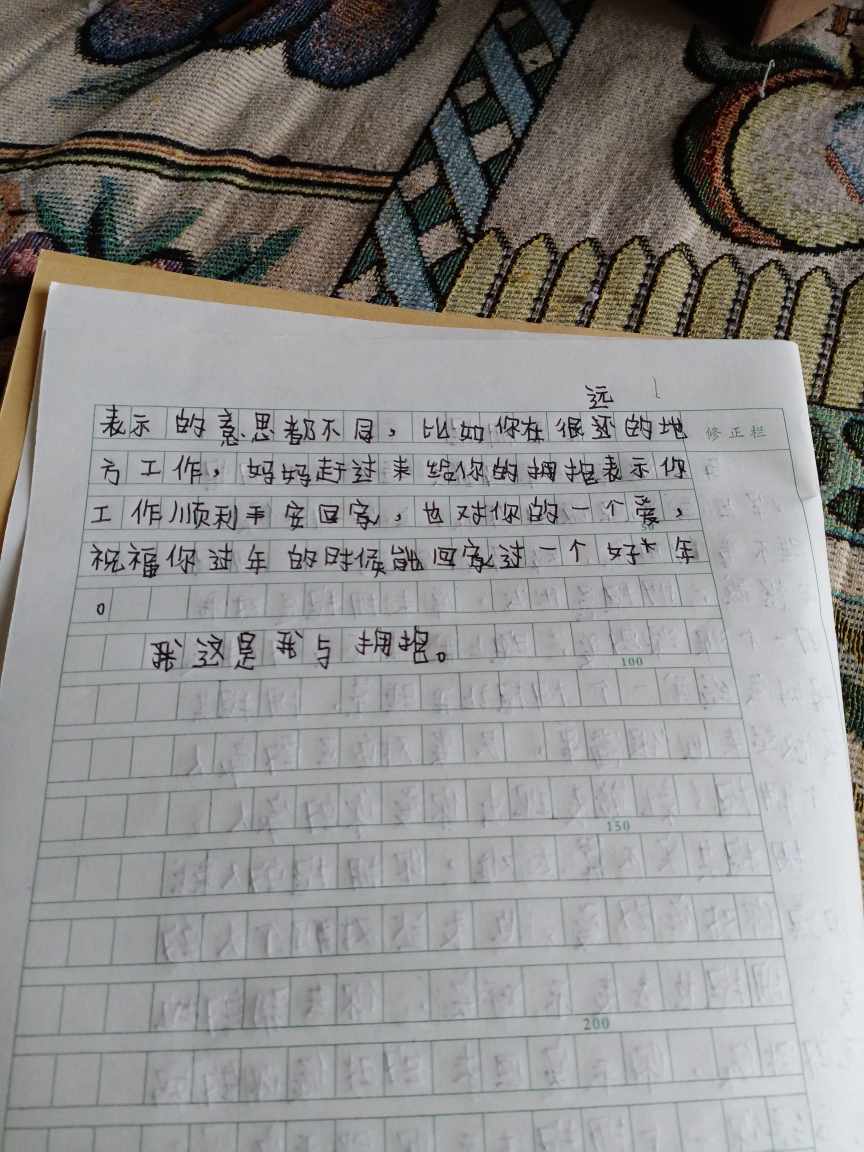 远
表示的意思都不同，比如你在很还的地
修正栏
方工作，妈妈赶过来给你的拥抱表示你
工作顺利平安回家，也对你的一个爱，
祝福你过年的时候能回家过一个好大年
。
我这是我与拥抱。
100
150
200